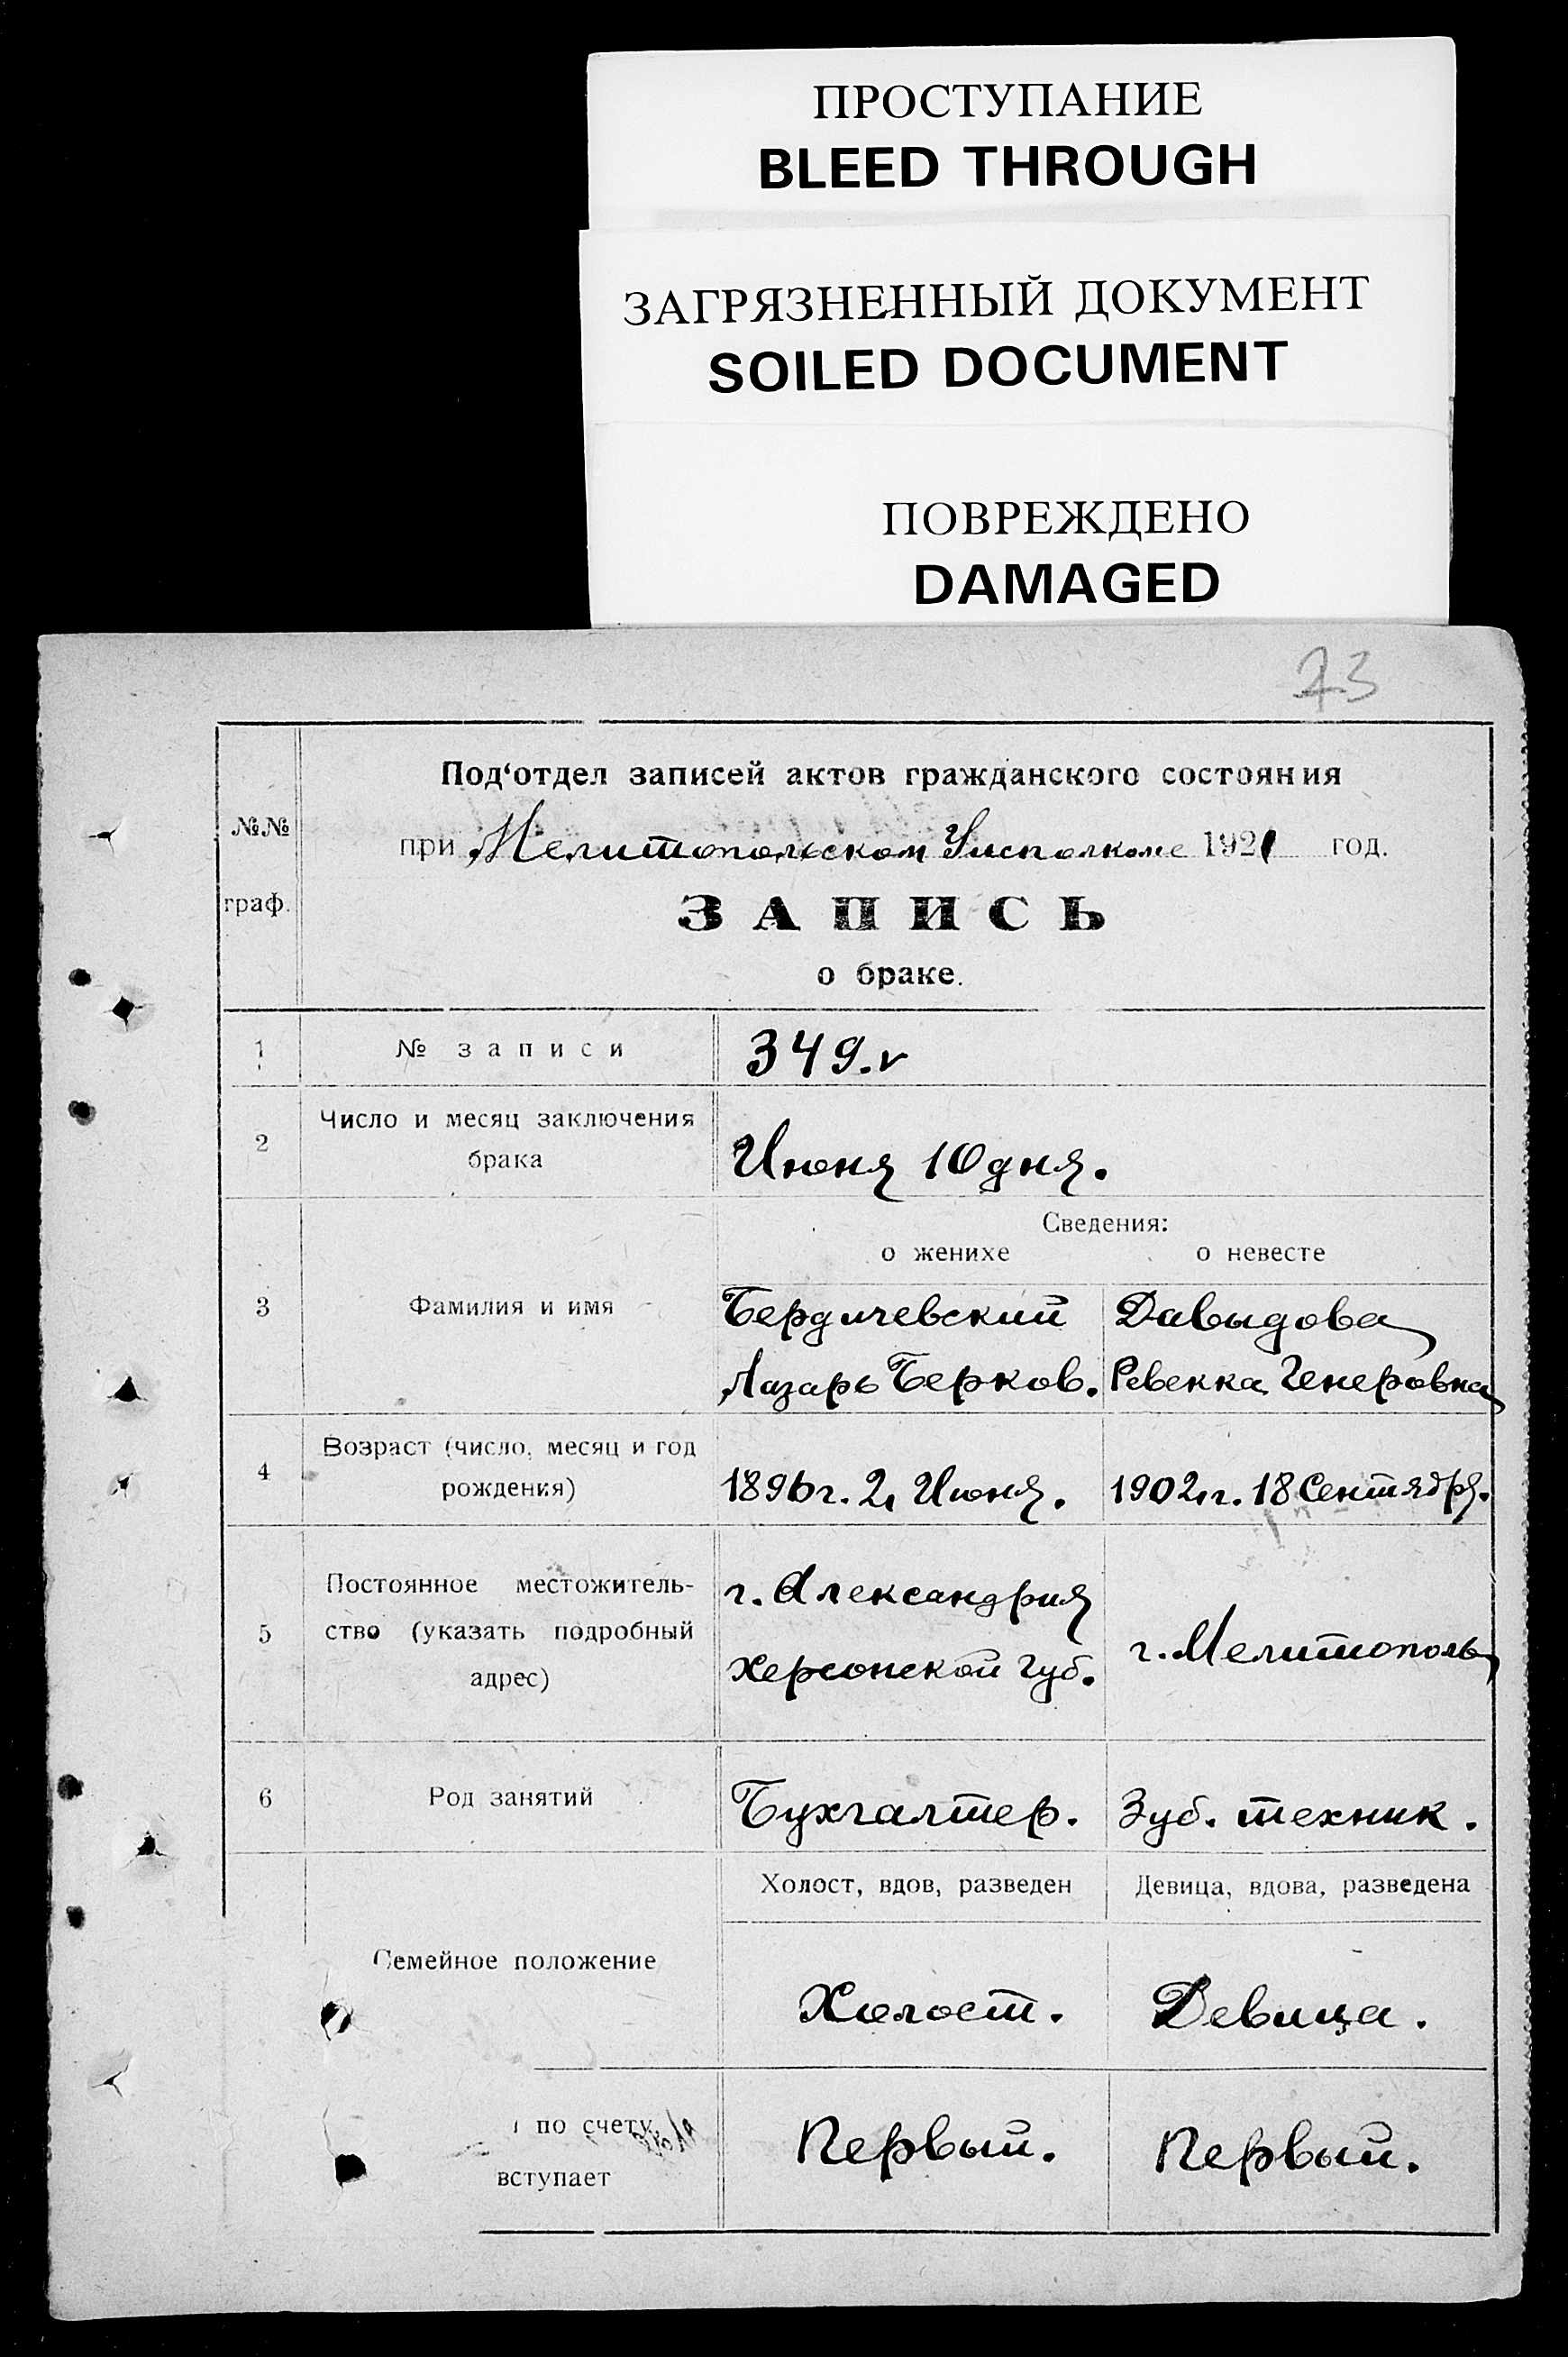 ПРОСТУПАНИЕ
BLEED THROUGH
ЗАГРЯЗНЕННЫЙ ДОКУМЕНТ
SOILED DOCUMENT
ПОВРЕЖДЕНО
DAMAGED
73
№№ граф.
Под‘отдел записей актов гражданского состояния
при Мелитопольском Уисполкоме 1921 год.
ЗАПИСЬ
о браке.
1 № записи 349.
2 Число и месяц заключения
брака
Июня 10 дня.
Сведения:
о женихе о невесте
3 Фамилия и имя
Бердичевский Давыдова
Лазарь Берков. Ревекка Генеровна
4 Возраст (число, месяц и год
рождения)
1896 г. 2 Июня. 1902 г. 18 Сентября.
5 Постоянное местожитель-
ство (указать подробный
адрес)
г. Александрия
Херсонской Губ.
г. Мелитополь
6 Род занятий Бухгалтер. Зуб. техник.
Холост, вдов, разведен Девица, вдова, разведена
Семейное положение
Холост. Девица.
по счету
вступает
Первый. Первый.